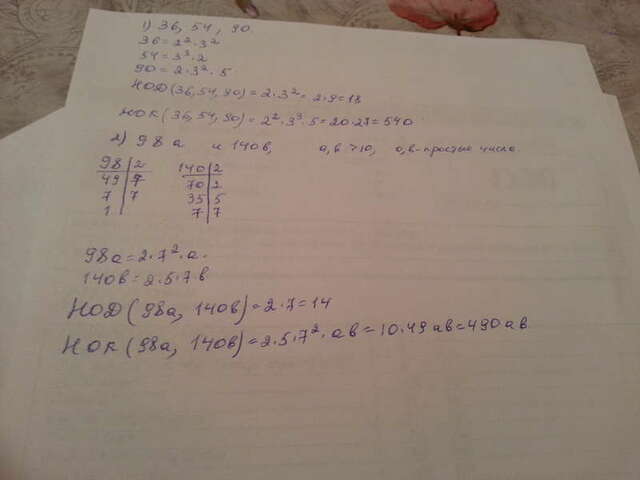 1) 36, 54, 90.
36=2²·3²
54=3³·2
90=2·3²·5
НОД(36,54,90)=2·3²=2·9=18
НОК(36,54,90)=2²·3³·5=20·27=540
2) 98а и 140в, а,в>10, а,в-простые числа
98|2
49|7
7|7
1|
140|2
70|2
35|5
7|7
98а=2·7²·а.
140в=2·5·7·в
НОД(98а, 140в)=2·7=14
НОК(98а, 140в)=2·5·7²·ав=10·49ав=490ав